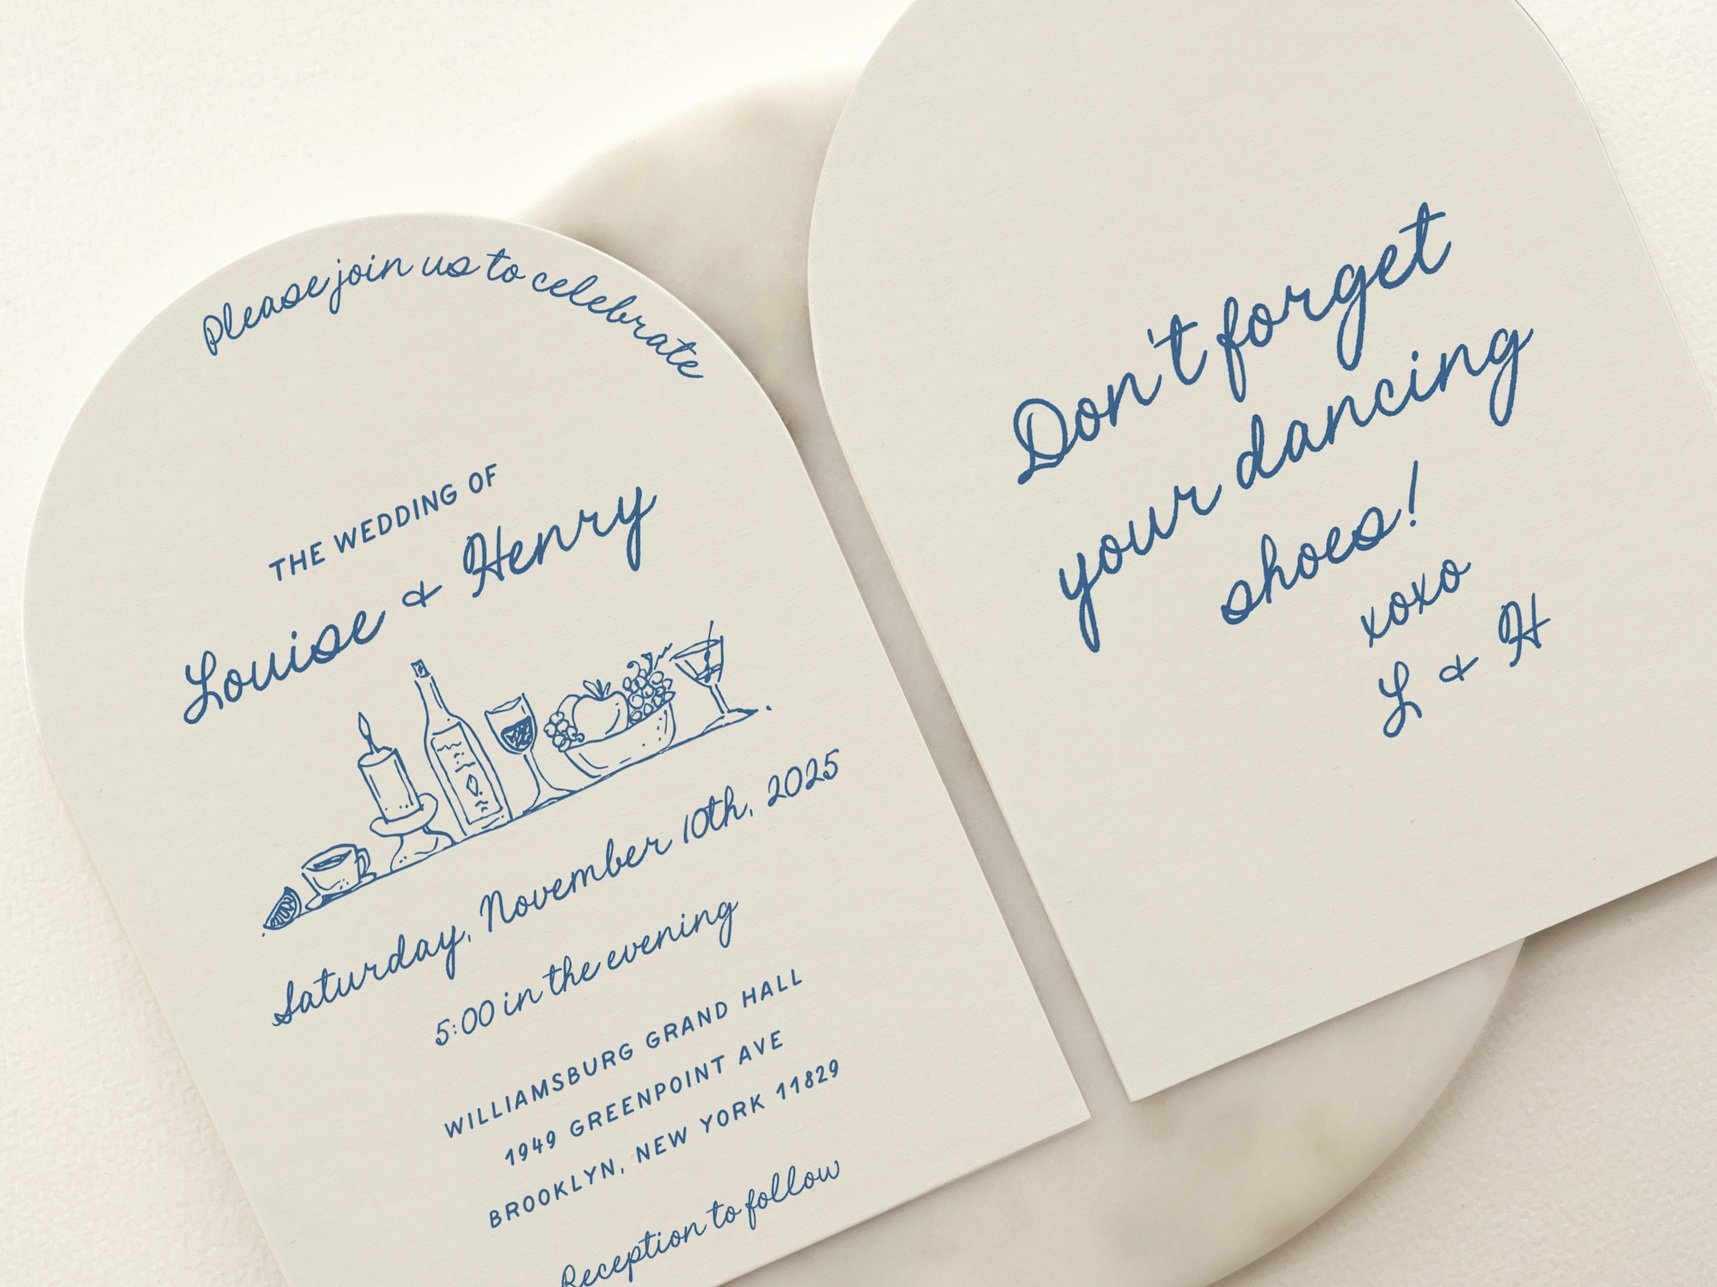 Please join us to celebrate
THE WEDDING OF
Louise & Henry
Saturday, November 10th, 2025
5:00 in the evening
WILLIAMSBURG GRAND HALL
1949 GREENPOINT AVE
BROOKLYN, NEW YORK 11829
Reception to follow
Don't forget
your dancing
shoes!
xoxo
L & H